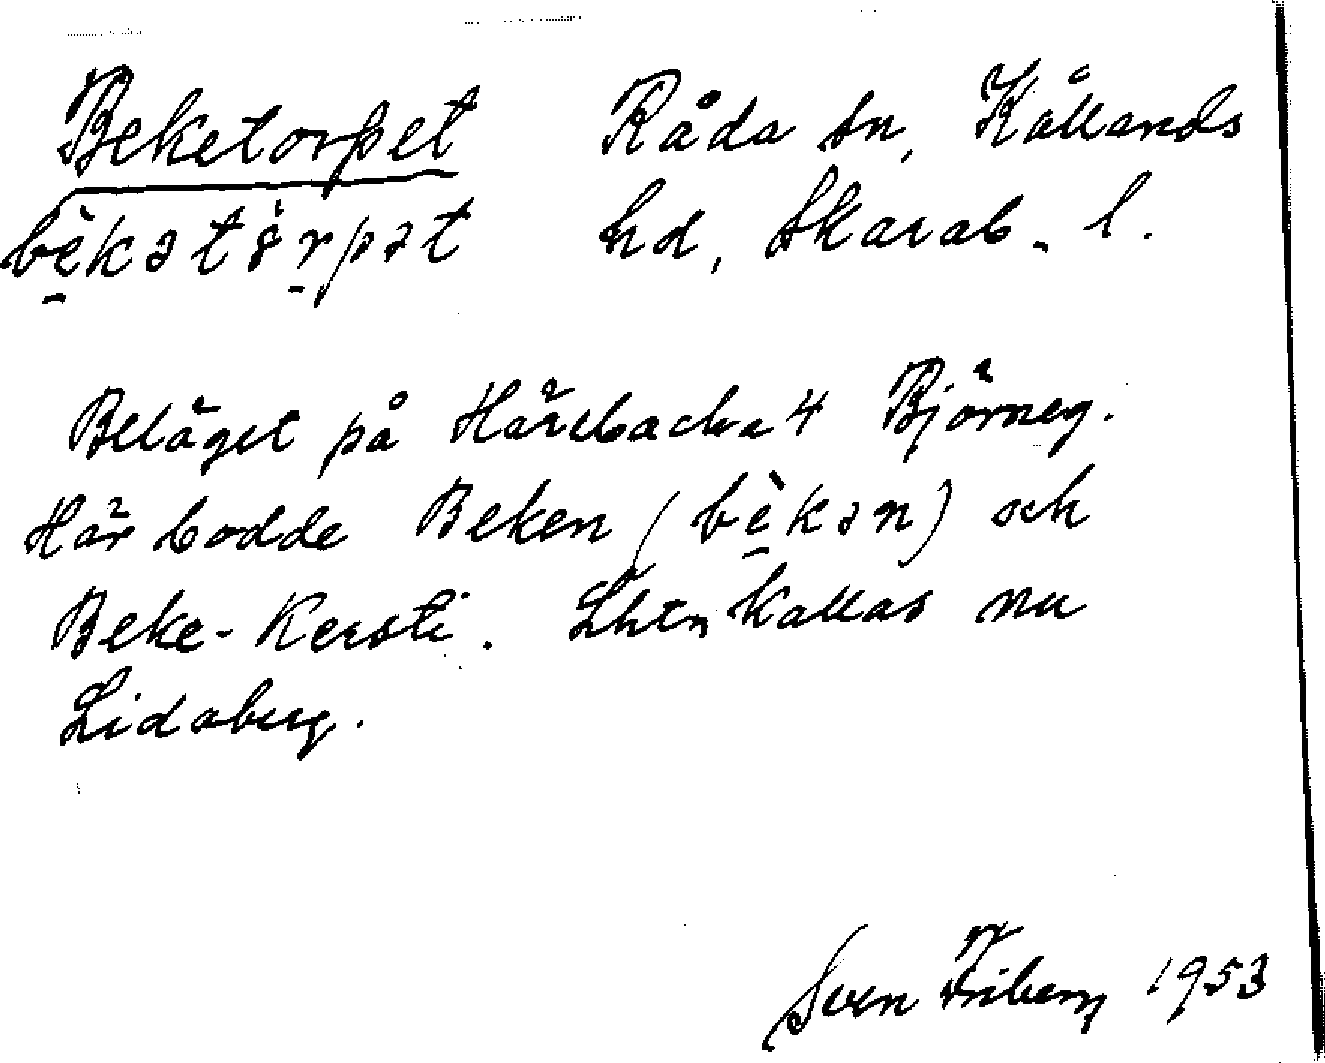 Beketorpet Råda sn, Kållands
bèkətȯrpət hd, Skarab. l.
Beläget på Härlbacka 4 Björneg.
Här bodde Beken (bèkən) och
Beke-Kersti. Lhtn kallas nu
Lidaberg.
Sven Friberg 1953